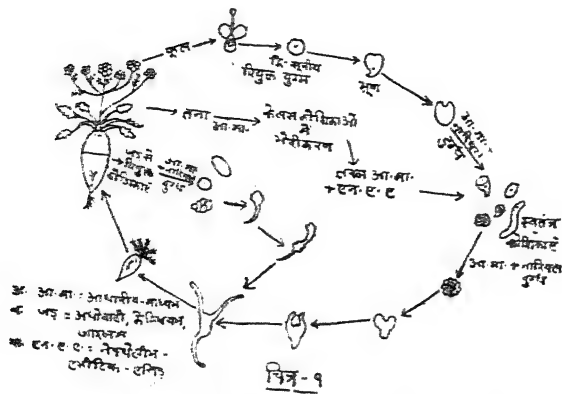 फूल
द्वि-सूत्रीय
रियुक्त युग्म
भ्रूण
आ.मा.+
नारियल
दुग्ध
तना
आ.मा.
केलस कोशिकाओं
में
भेदीकरण
तरल आ.मा.
+एन.ए.ए
स्वतंत्र
कोशिकाएं
आ.मा.+नारियल
दुग्ध
जड़ से
वियुक्त
कोशिकाएं
आ.मा.
नारियल
दुग्ध
आ.मा.: आधारीय-माध्यम
जड़ = अधोवाही, केम्बियम,
जाइलम
एन.ए.ए.: नेफ्थेलीन-
एसीटिक-एसिड
चित्र-१